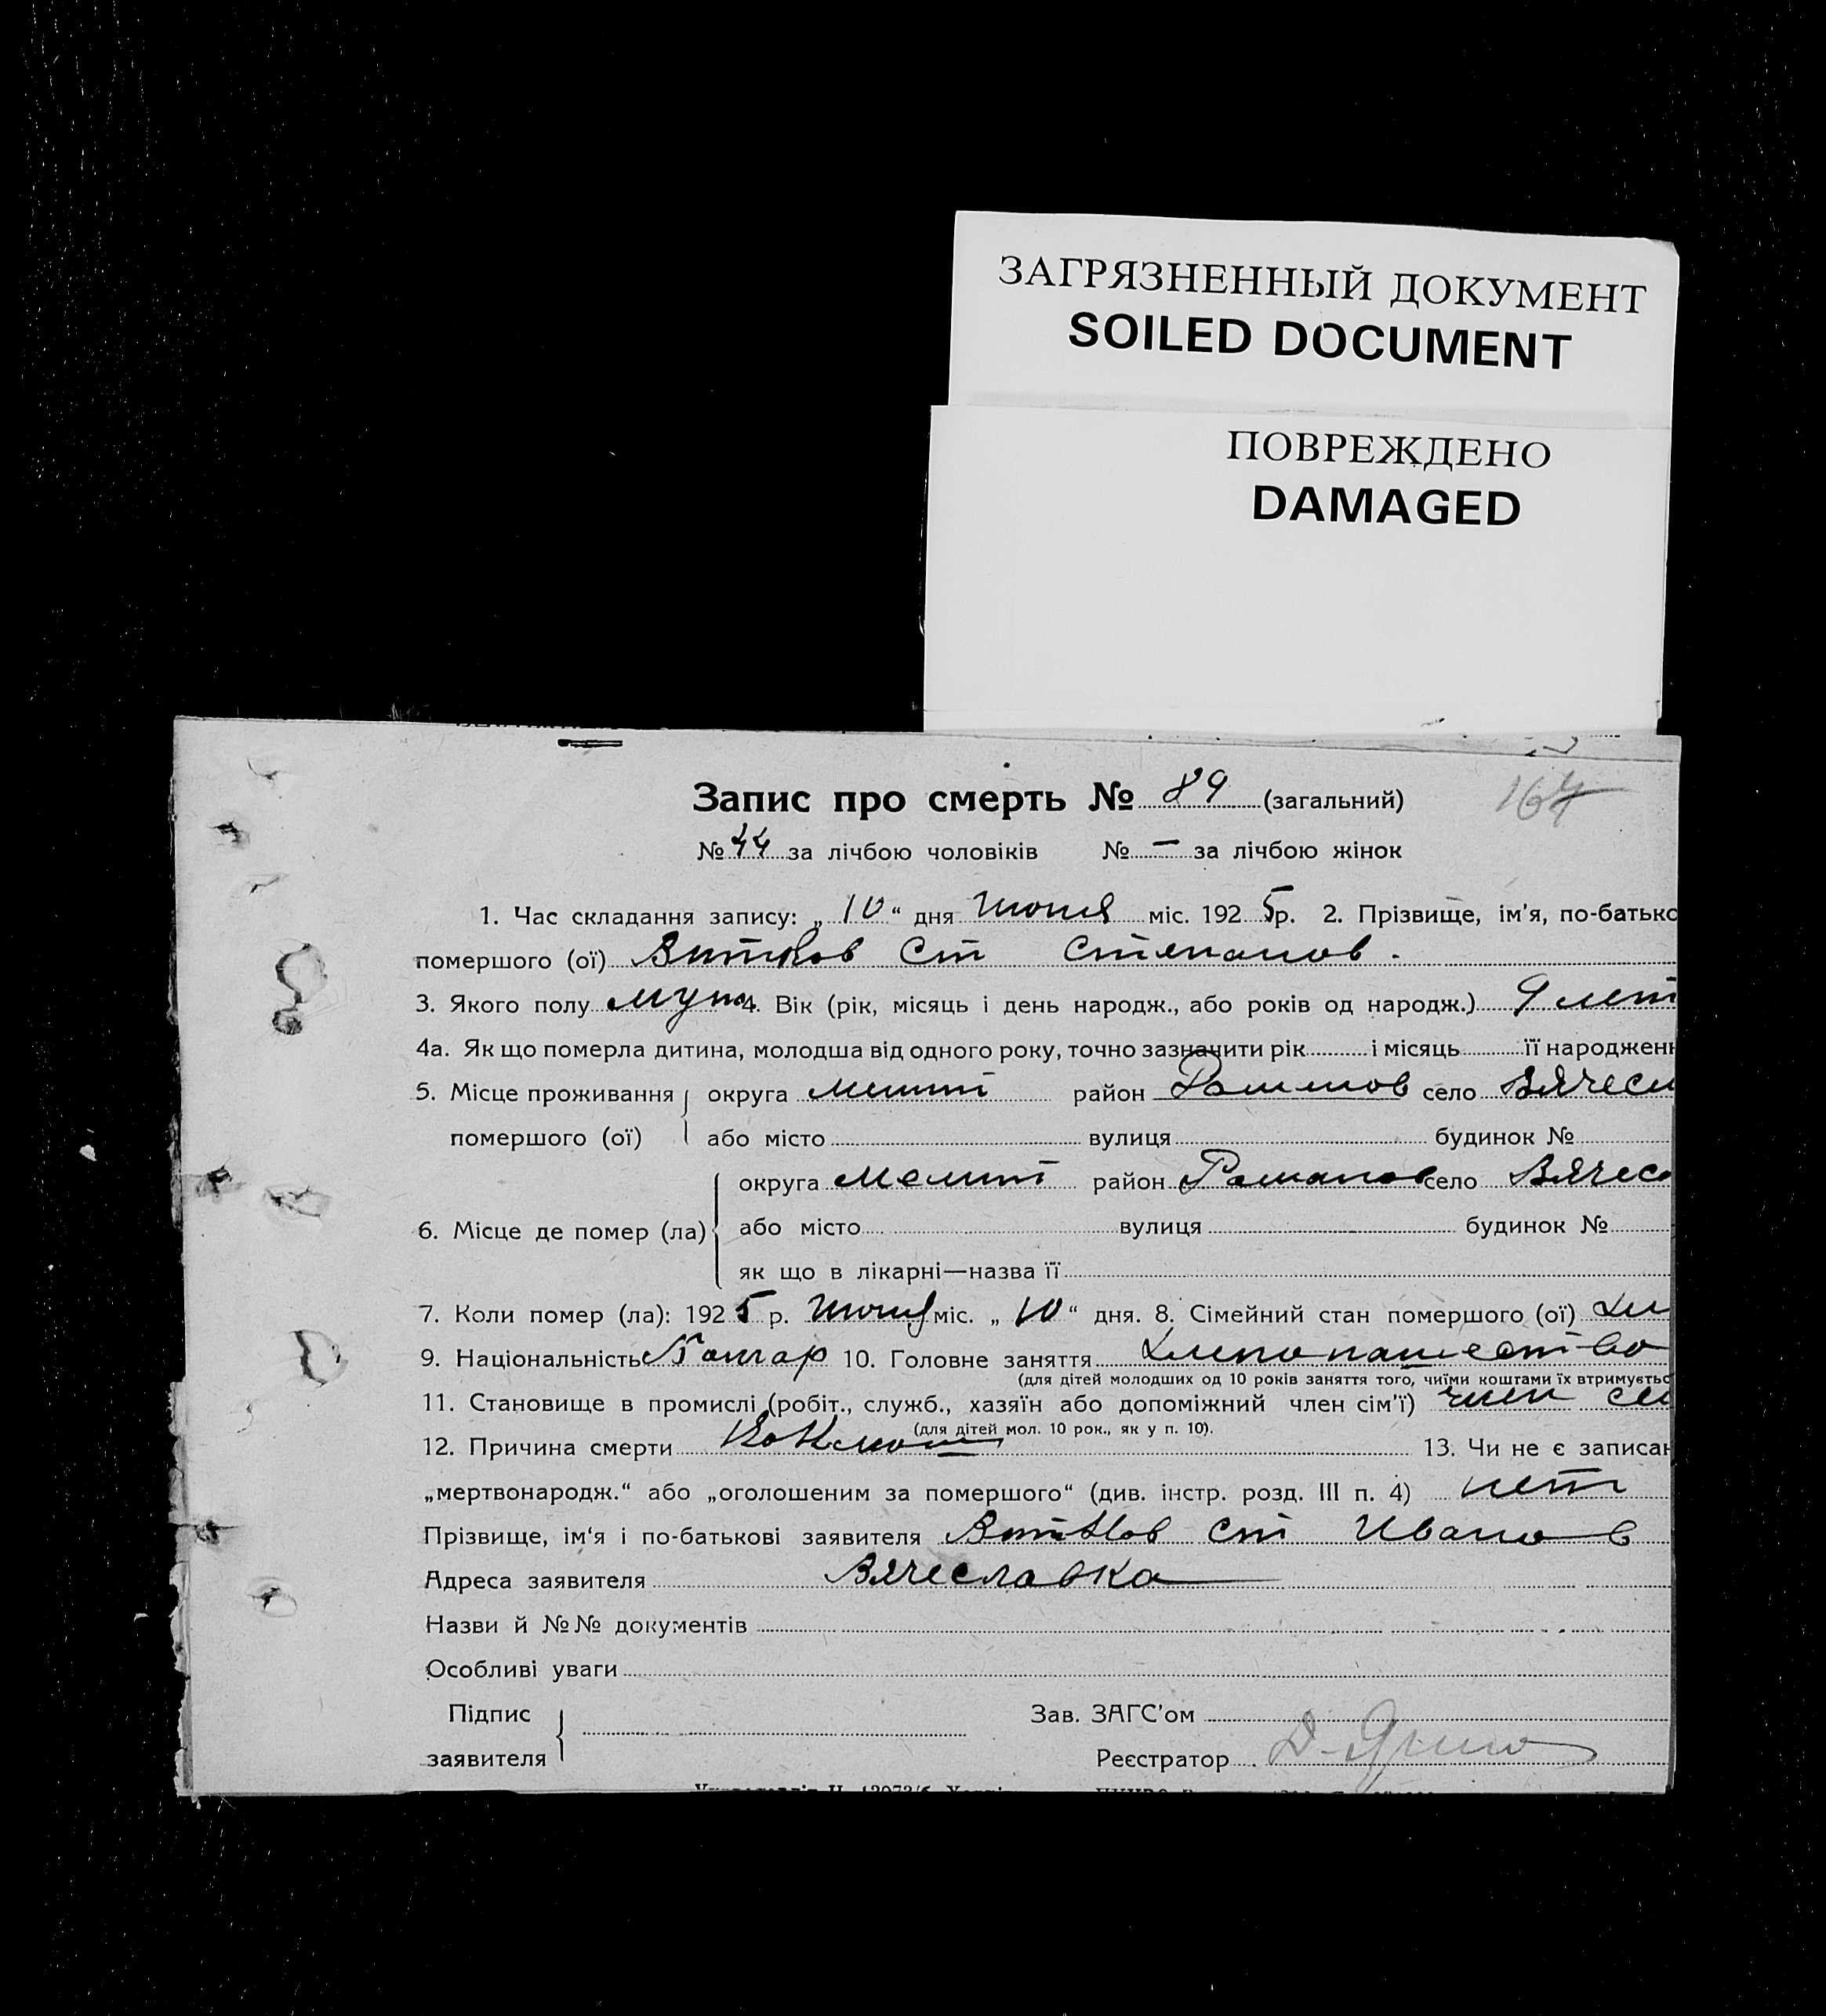 ЗАГРЯЗНЕННЫЙ ДОКУМЕНТ
SOILED DOCUMENT
ПОВРЕЖДЕНО
DAMAGED
164
Запис про смерть № 89 (загальний)
№ 44 за лічбою чоловіків № — за лічбою жінок
1. Час складання запису: „ 10 “ дня Июня міс. 192 5 р. 2. Прізвище, ім'я, по-батько
помершого (ої) Ст Степанов.
3. Якого полу муж 4. Вік (рік, місяць і день народж., або років од народж.) 9 лет
4а. Як що померла дитина, молодша від одного року, точно зазначити рік і місяць її народженн
5. Місце проживання округа Мелит район Романов село Вячесл
помершого (ої) або місто вулиця будинок №
округа Мелит район Романов село Вячесл
6. Місце де помер (ла) або місто вулиця будинок №
як що в лікарні—назва її
7. Коли помер (ла): 192 5 р. Июня міс. „ 10 “ дня. 8. Сімейний стан помершого (ої)
9. Національність Болгар 10. Головне заняття хлебопашество
(для дітей молодших од 10 років заняття того, чиїми коштами їх втримуєтьс
11. Становище в промислі (робіт., служб., хазяїн або допоміжний член сім'ї) член се
(для дітей мол. 10 рок., як у п. 10).
12. Причина смерти Коклюш 13. Чи не є записан
„мертвонародж.“ або „оголошеним за помершого“ (див. інстр. розд. III п. 4) нет
Прізвище, ім'я і по-батькові заявителя Ст Иванов
Адреса заявителя Вячеславка
Назви й №№ документів
Особливі уваги
Підпис заявителя
Зав. ЗАГС'ом
Реєстратор